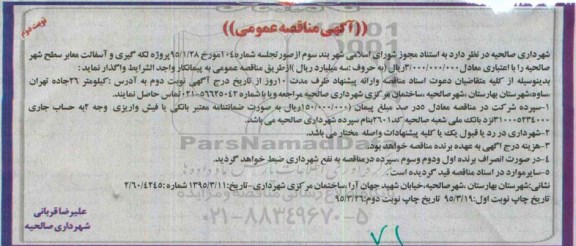 ((آگهی مناقصه عمومی))
نوبت دوم
شهرداری صالحیه در نظر دارد به استناد مجوز شورای اسلامی شهر بند سوم ازصورتجلسه شماره۱۰۴مورخ ۹۵/۱/۲۸پروژه لکه گیری و آسفالت معابر سطح شهر
صالحیه را با اعتباری معادل۳/۰۰۰/۰۰۰/۰۰۰ریال (به حروف:سه میلیارد ریال )ازطریق مناقصه عمومی به پیمانکار واجد الشرایط واگذار نماید:
بدینوسیله از کلیه متقاضیان دعوت اسناد مناقصه وارائه پیشنهاد ظرف مدت ۱۰روز از تاریخ درج آگهی نوبت دوم به آدرس :کیلومتر ۲۶جاده تهران
ساوه:شهرستان بهارستان،شهرصالحیه ساختمان مرکزی شهرداری صالحیه مراجعه ویا با شماره ۵۶۶۲۵۰۴۲-۰۲۱تماس حاصل نمایند.
۱-سپرده شرکت در مناقصه معادل ۵در صد مبلغ پیمان (۱۵۰/۰۰۰/۰۰۰)ریال به صورت ضمانتنامه معتبر بانکی یا فیش واریزی وجه به حساب جاری
۳۱۰۰۰۵۲۳۴۰۰۰نزد بانک ملی شعبه صالحیه کد۲۶۰۱بنام سپرده شهرداری صالحیه می باشد.
۲-شهرداری در رد یا قبول یک یا کلیه پیشنهادات واصله مختار می باشد.
۳-هزینه درج آگهی به عهده برنده مناقصه خواهد بود.
۴-در صورت انصراف برنده اول ودوم وسوم ،سپرده درمناقصه به نفع شهرداری ضبط خواهد گردید.
۵-سایرموارد در اسناد مناقصه قید گردیده است.
نشانی:شهرستان بهارستان ،شهرصالحیه،خیابان شهید جهان آرا،ساختمان مرکزی شهرداری-تاریخ:۱۳۹۵/۳/۱۱ شماره :۲/۶۰/۴۲۴۵
تاریخ چاپ نوبت اول:۹۵/۳/۱۹ تاریخ چاپ نوبت دوم:۹۵/۳/۲۶
علیرضا قربانی
شهرداری صالحیه
ParsNamadData
۰۲۱-۸۸۳۴۹۶۷۰-۵